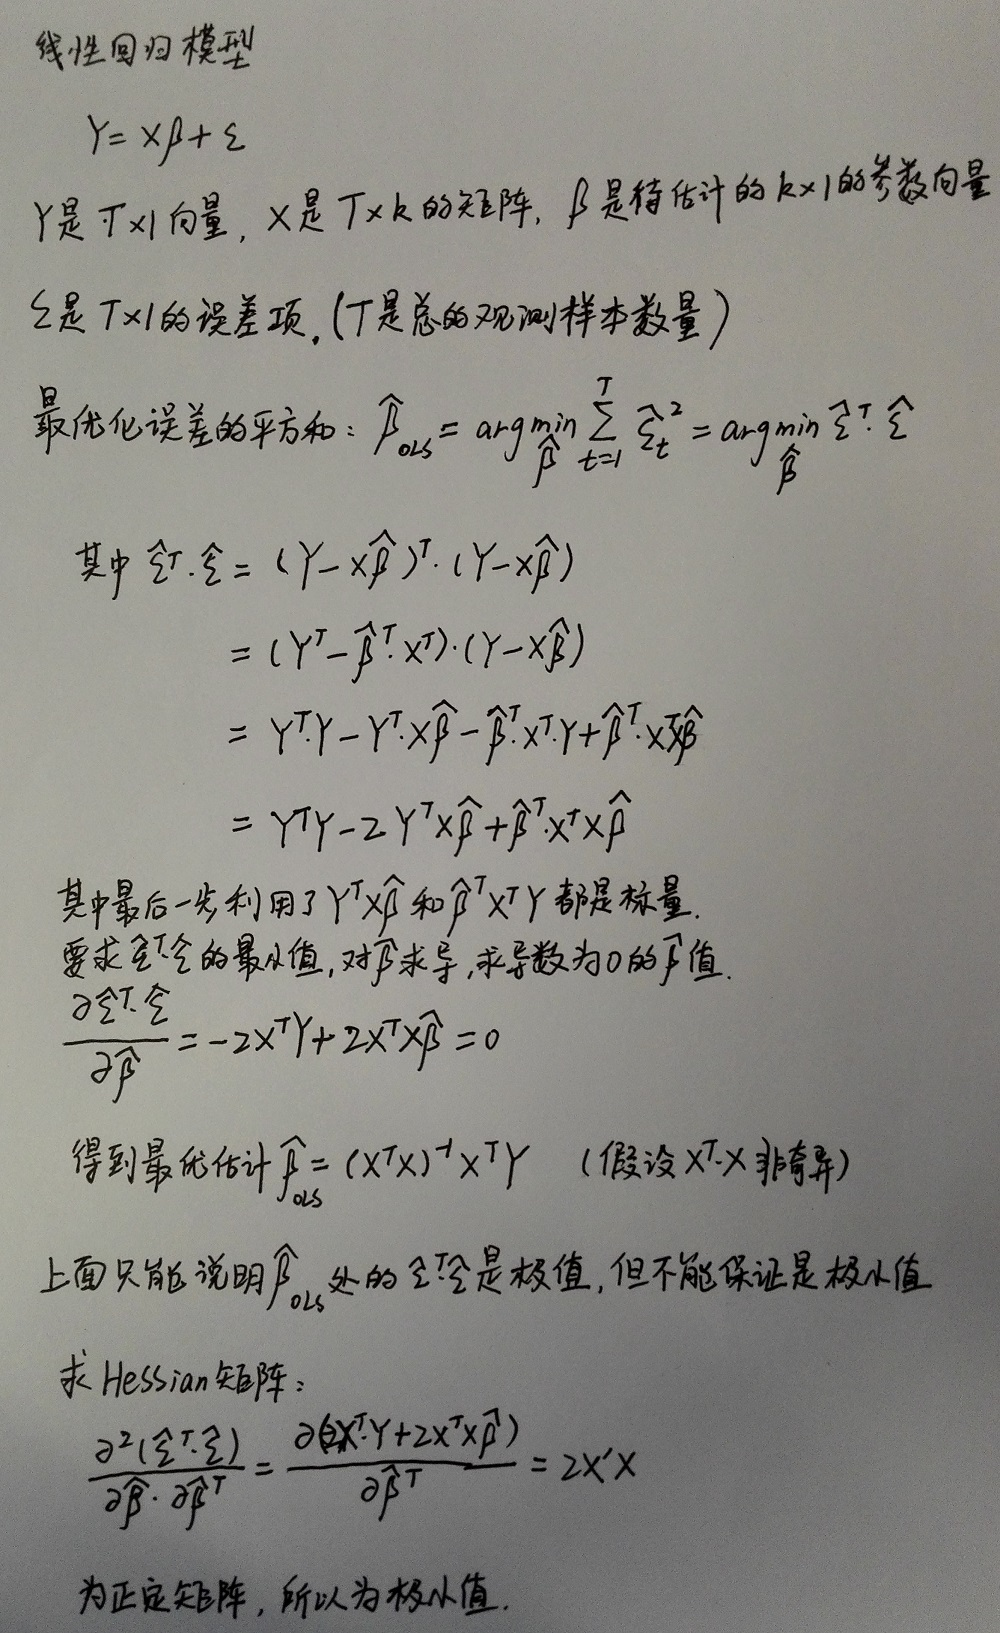 线性回归模型
Y = Xβ + ε
Y是T×1向量, X是T×k的矩阵, β是待估计的k×1的参数向量
ε是T×1的误差项.(T是总的观测样本数量)
最优化误差的平方和: β̂_OLS = argmin_β̂ Σ_{t=1}^{T} ε̂_t² = argmin_β̂ ε̂ᵀ·ε̂
其中 ε̂ᵀ·ε̂ = (Y-Xβ̂)ᵀ·(Y-Xβ̂)
= (Yᵀ-β̂ᵀ·Xᵀ)·(Y-Xβ̂)
= Yᵀ·Y-Yᵀ·Xβ̂-β̂ᵀ·Xᵀ·Y+β̂ᵀ·XᵀXβ̂
= YᵀY-2YᵀXβ̂+β̂ᵀ·XᵀXβ̂
其中最后一步利用了YᵀXβ̂和β̂ᵀXᵀY都是标量.
要求ε̂ᵀ·ε̂的最小值,对β̂求导,求导数为0的β̂值.
∂ε̂ᵀ·ε̂/∂β̂ = -2XᵀY+2XᵀXβ̂ = 0
得到最优估计β̂_OLS = (XᵀX)⁻¹XᵀY (假设Xᵀ·X非奇异)
上面只能说明β̂_OLS处的ε̂ᵀ·ε̂是极值,但不能保证是极小值
求Hessian矩阵:
∂²(ε̂ᵀ·ε̂)/∂β̂·∂β̂ᵀ = ∂(-2Xᵀ·Y+2XᵀXβ̂)/∂β̂ᵀ = 2X'X
为正定矩阵,所以为极小值.